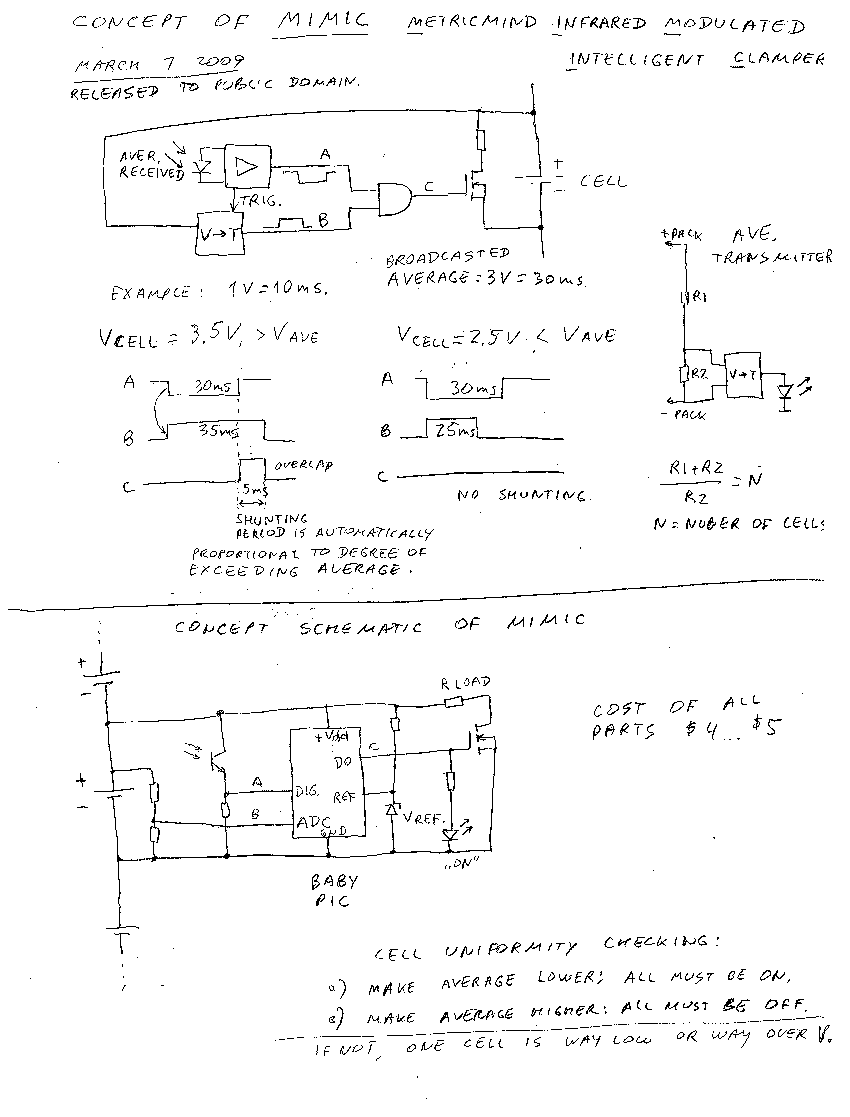 CONCEPT OF MIMIC METRICMIND INFRARED MODULATED
INTELLIGENT CLAMPER
MARCH 7 2009
RELEASED TO PUBLIC DOMAIN.
AVER.
RECEIVED
A
TRIG.
V→T
B
C
+
-
CELL
BROADCASTED
AVERAGE = 3V = 30ms.
EXAMPLE: 1V = 10ms.
+PACK
AVE.
TRANSMITTER
R1
R2
V→T
-PACK
R1+R2
R2
= N
N = NUBER OF CELLS
VCELL = 3.5V, > VAVE
A
30ms
B
35ms
C
OVERLAP
5ms
SHUNTING
PERIOD IS AUTOMATICALLY
PROPORTIONAL TO DEGREE OF
EXCEEDING AVERAGE.
VCELL = 2.5V < VAVE
A
30ms
B
25ms
C
NO SHUNTING.
CONCEPT SCHEMATIC OF MIMIC
+
-
+
-
R LOAD
+Vdd
DO
C
A
DIG.
REF
B
ADC
GND
VREF.
„ON"
BABY
PIC
COST OF ALL
PARTS $4...$5
CELL UNIFORMITY CHECKING:
a) MAKE AVERAGE LOWER; ALL MUST BE ON,
MAKE AVERAGE HIGHER: ALL MUST BE OFF.
IF NOT, ONE CELL IS WAY LOW OR WAY OVER V.